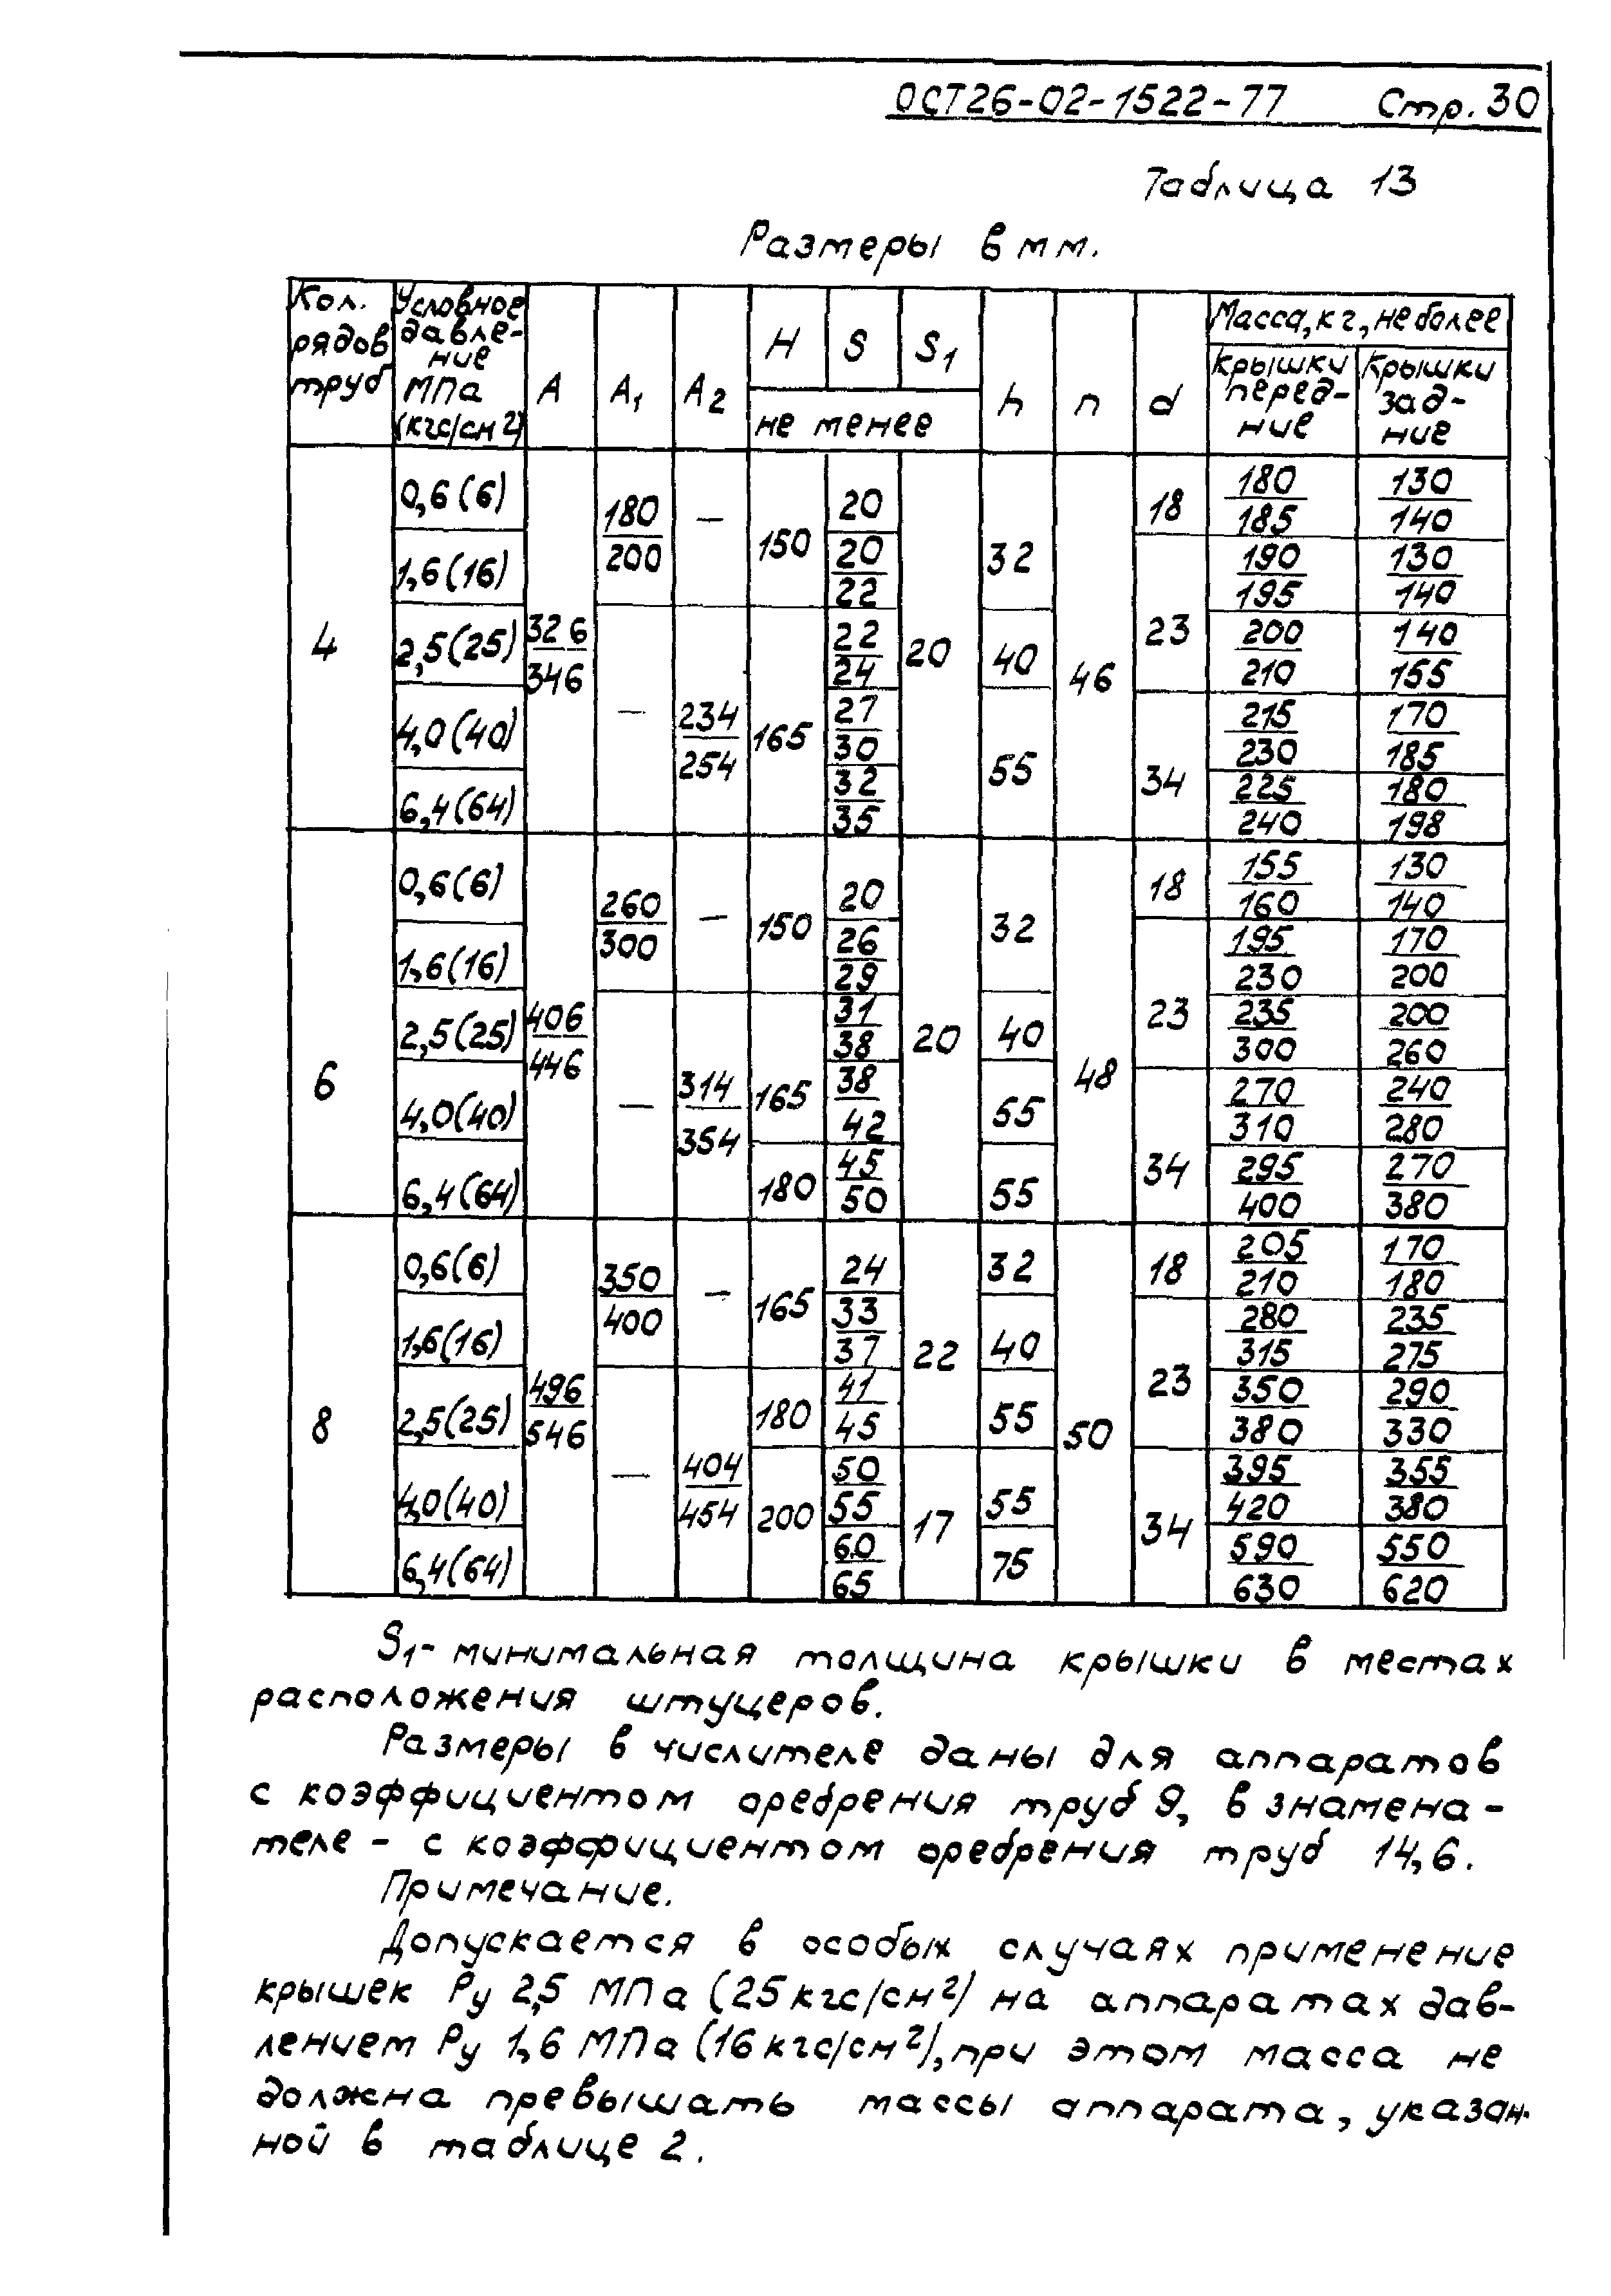 ОСТ26-02-1522-77 Стр. 30
Таблица 13
Размеры в мм.
Кол. рядов труб | Условное давле-ние МПа (кгс/см²) | А | А₁ | А₂ | Н | S | S₁ | h | n | d | Масса, кг, не более
не менее | крышки перед-ние | крышки зад-ние
4 | 0,6(6) | 326/346 | 180/200 | — | 150 | 20 | 20 | 32 | 46 | 18 | 180/185 | 130/140
1,6(16) | 20/22 | 23 | 190/195 | 130/140
2,5(25) | — | 234/254 | 165 | 22/24 | 40 | 200/210 | 140/155
4,0(40) | 27/30 | 55 | 34 | 215/230 | 170/185
6,4(64) | 32/35 | 225/240 | 180/198
6 | 0,6(6) | 406/446 | 260/300 | — | 150 | 20 | 20 | 32 | 48 | 18 | 155/160 | 130/140
1,6(16) | 26/29 | 23 | 195/230 | 170/200
2,5(25) | — | 314/354 | 165 | 31/38 | 40 | 235/300 | 200/260
4,0(40) | 38/42 | 55 | 34 | 270/310 | 240/280
6,4(64) | 180 | 45/50 | 55 | 295/400 | 270/380
8 | 0,6(6) | 496/546 | 350/400 | — | 165 | 24 | 22 | 32 | 50 | 18 | 205/210 | 170/180
1,6(16) | 33/37 | 40 | 23 | 280/315 | 235/275
2,5(25) | — | 404/454 | 180 | 41/45 | 55 | 350/380 | 290/330
4,0(40) | 200 | 50/55 | 17 | 55 | 34 | 395/420 | 355/380
6,4(64) | 60/65 | 75 | 590/630 | 550/620
S₁- минимальная толщина крышки в местах
расположения штуцеров.
Размеры в числителе даны для аппаратов
с коэффициентом оребрения труб 9, в знамена-
теле - с коэффициентом оребрения труб 14,6.
Примечание.
Допускается в особых случаях применение
крышек Ру 2,5 МПа (25 кгс/см²) на аппаратах дав-
лением Ру 1,6 МПа (16 кгс/см²), при этом масса не
должна превышать массы аппарата, указан-
ной в таблице 2.